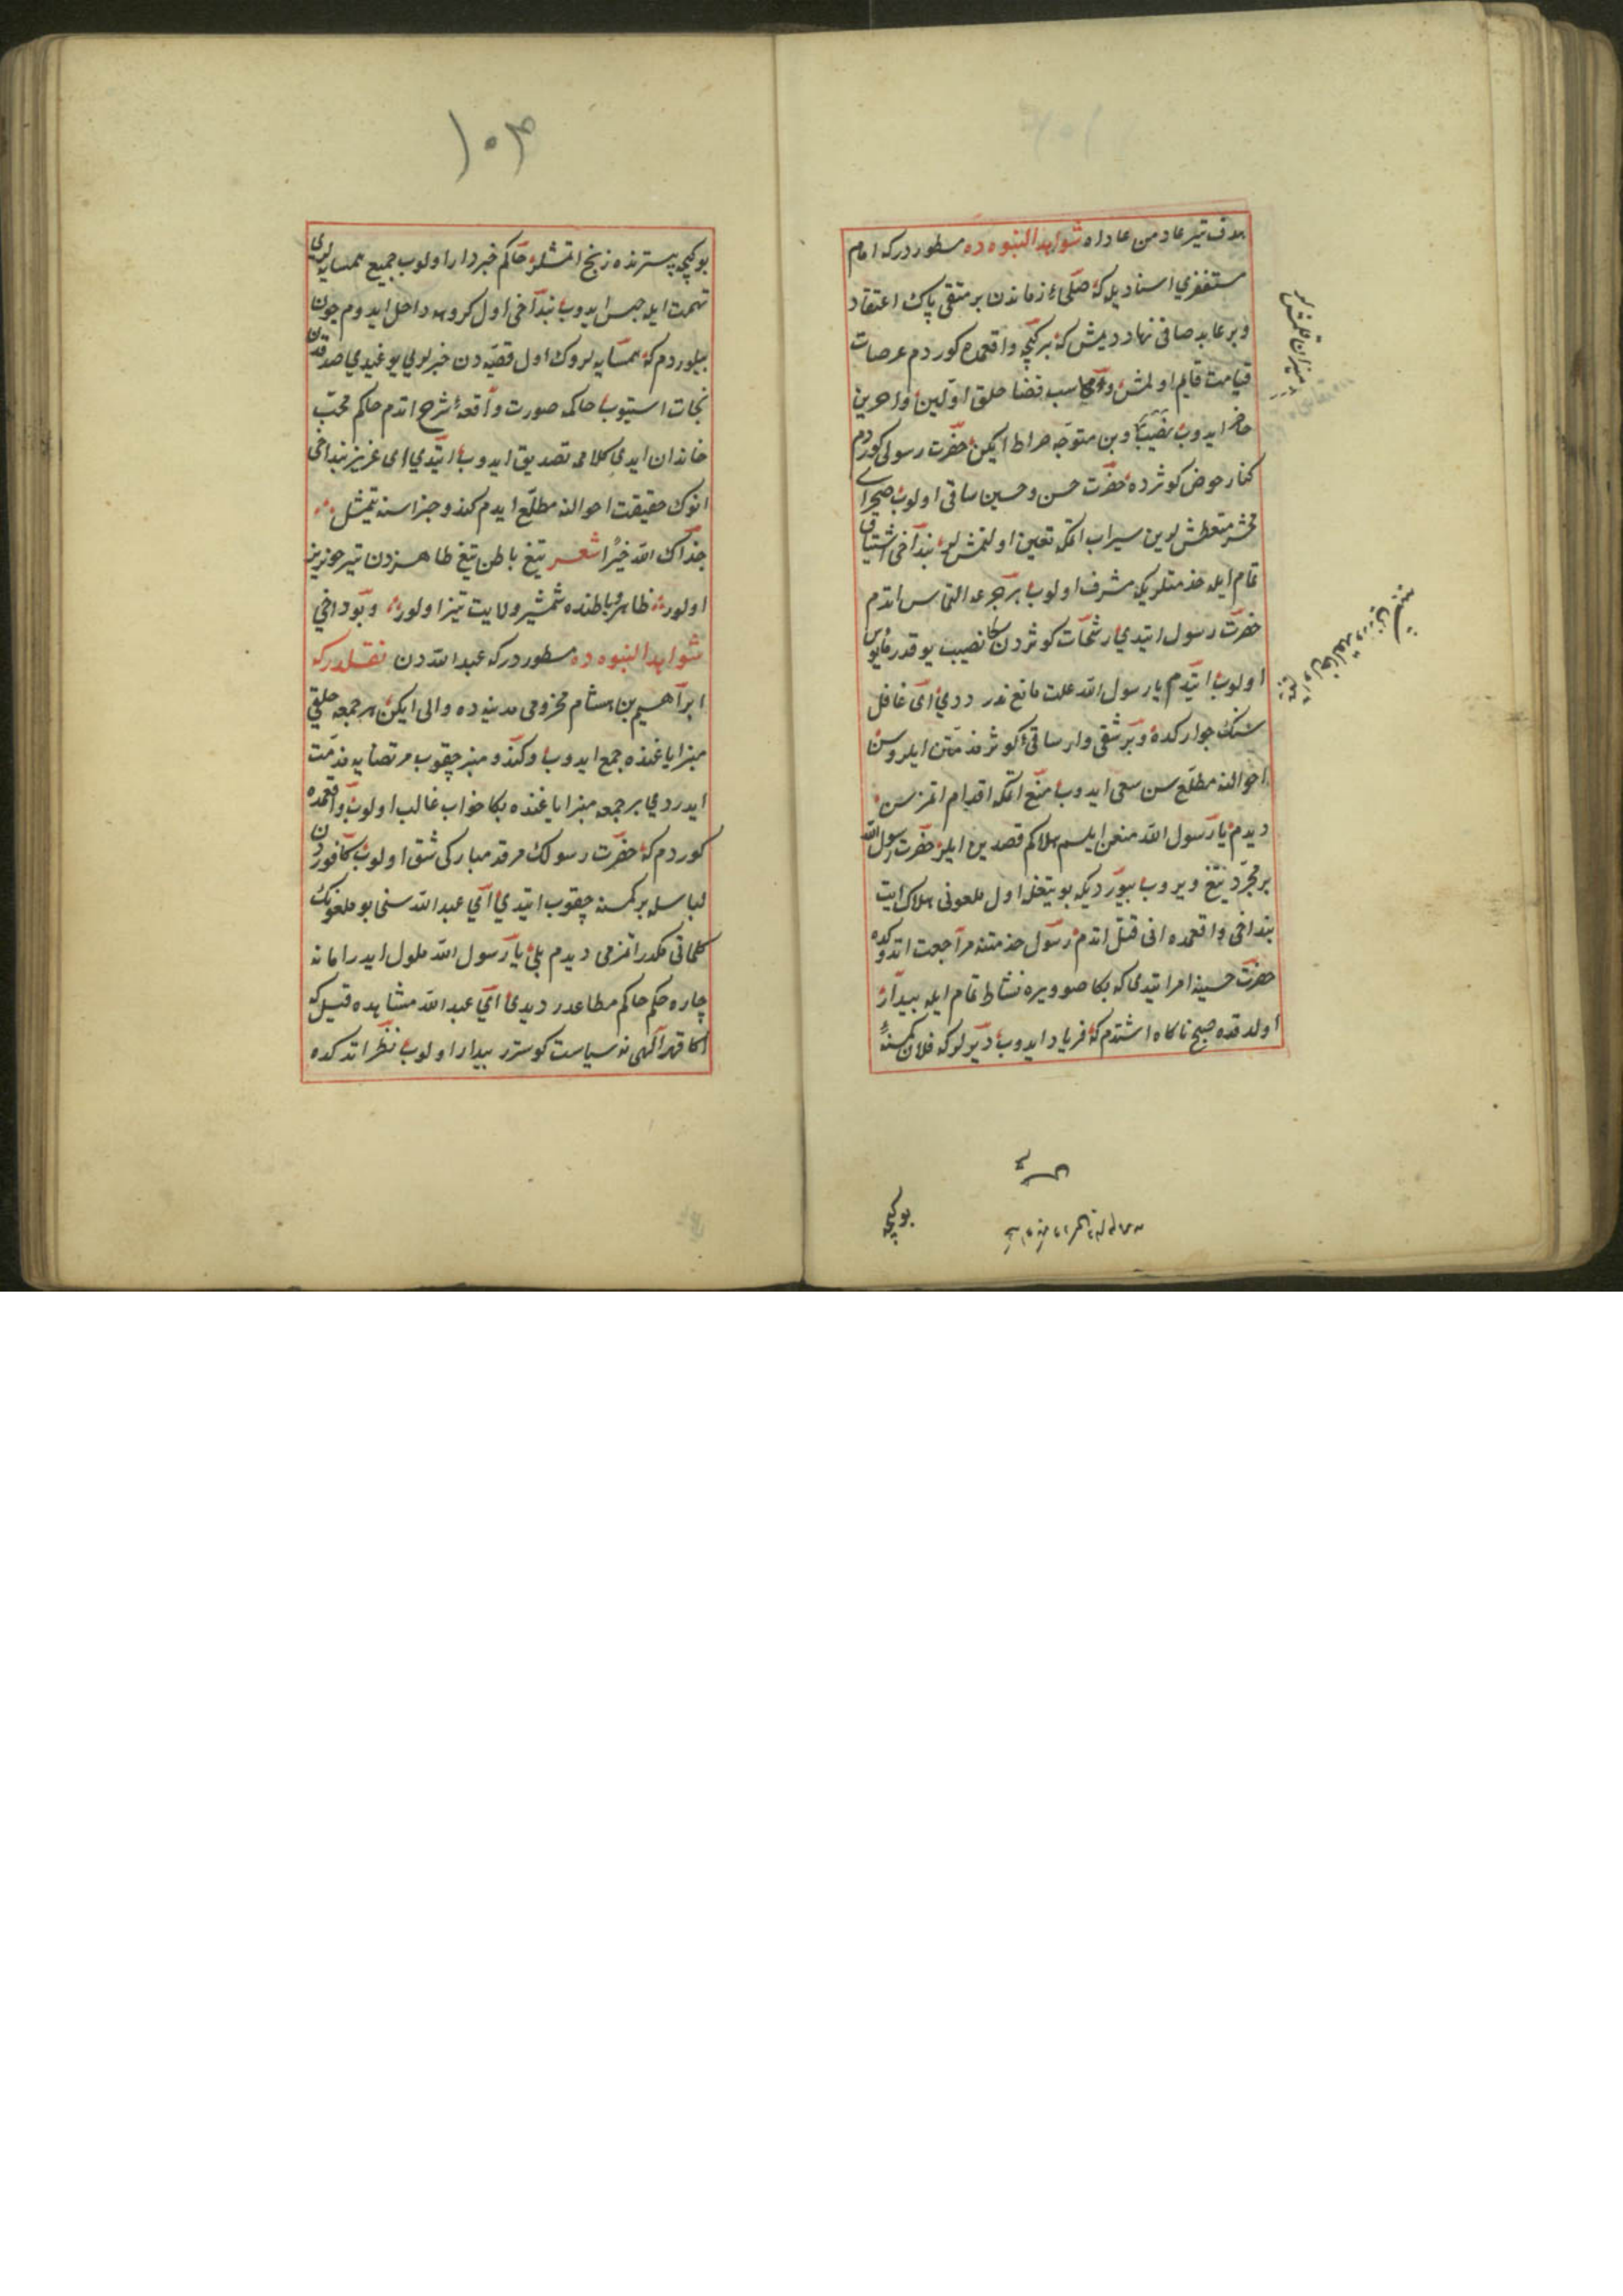 هدف تیر عاد من عاداه شواهد النبوه ده مسطوردركه امام
مستغفری اسنادیله كه صلحای زماندن بر متقی پاك اعتقاد
و بر عابد صافی نهاد دیمش كه بر كیجه واقعمده كوردم عرصات
قیامت قایم اولمش و محاسب قضا خلق اولین و آخرین
حاضر ایدوب وبن متوجه صراط ایكن حضرت رسولی كوردم
كنار حوض كوثرده حضرت حسن و حسین ساقی اولوب صحرای
محشر متعطشلرین سیراب اتمكه تعیین اولنمشلر بنداخی اشتیاق
تمام ایله خدمتلریكه مشرف اولوب بر جرعه التماس اتدم
حضرت رسول ایتدی رشحات كوثردن سكا نصیب یوقدر مأیوس
اولوب ایتدم یا رسول الله علت مانع ندر ددی ای غافل
سنك جواركده بر شقی وار ساقی كوثر مذمتن ایلر و سن
احوالنه مطلع سن سعی ایدوب منع اتمكه اقدام اتمزسن
دیدم یا رسول الله منعن ایلسم هلاكم قصدین ایلر حضرت رسول الله
بر مجرد تیغ ویروب بیوردیكه بو تیغله اول ملعونی هلاك ایت
بنداخی واقعمده انی قتل اتدم رسول خدمتنه مراجعت اتدوكده
حضرت حسینه امر ایتدی كه بكا صو ویره نشاط تمام ایله بیدار
اولدقده صبح ناكاه اشتدم كه فریاد ایدوب دیرلركه فلان كمسنه
بوكیجه
۱۰۳
بوكیجه بسترنده زبح اتمشلر حاكم خبردار اولوب جمیع همسایه لری
تهمت ایله حبس ایدوب بنداخی اول كروهه داخل ایدوم چون
بیلوردم كه همسایه لروك اول قضیه دن خبرلری یوغیدی صدقدن
نجات استیوب حاكمه صورت واقعه شرح اتدم حاكم محب
خاندان ایدی كلامی تصدیق ایدوب ایتدی ای عزیز بنداخی
انوك حقیقت احوالنه مطلع ایدم كندو جزاسنه یتمش
جزاك الله خیرا شعر تیغ باطن تیغ ظاهردن تیز خونریز
اولور ظاهر و باطنده شمشیر ولایت تیز اولور وبوداخی
شواهد النبوه ده مسطوردركه عبدالله دن نقلدركه
ابراهیم بن هشام مخزومی مدینه ده والی ایكن هر جمعه خلقی
منبر ایاغنده جمع ایدوب وكندو منبره چقوب مرتضایه مذمت
ایدردی بر جمعه منبر ایاغنده بكا خواب غالب اولوب واقعمده
كوردم كه حضرت رسولك مرقد مباركی شق اولوب كافوردن
لباسله بر كمسنه چقوب ایتدی ای عبدالله سنی بو ملعونك
كلماتی مكدر اتمزمی دیدم بلی یا رسول الله ملول ایدر اما نه
چاره حكم حاكم مطاعدر دیدی ای عبدالله مشاهده قیل كه
اكا قهر الهی نه سیاست كوسترر بیدار اولوب نظر اتدكده